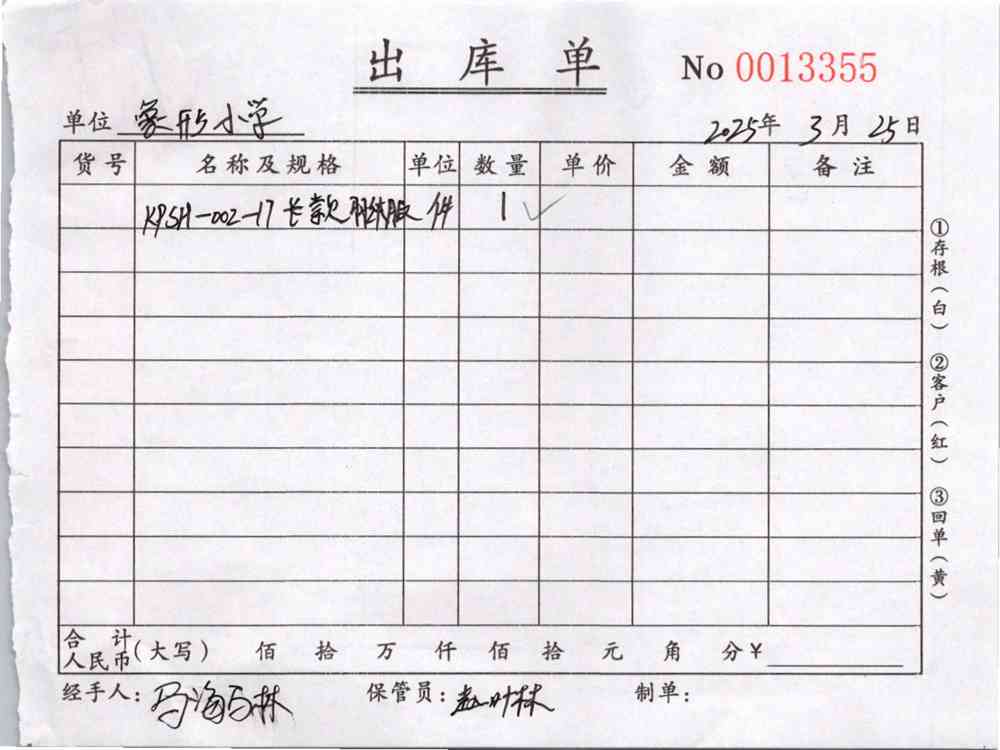 出库单 No 0013355
单位 象形小学 2025年 3月 25日
货号 名称及规格 单位 数量 单价 金额 备注
KPSH-002-17 长款 服 件 1 ✓
合计人民币(大写) 佰 拾 万 仟 佰 拾 元 角 分¥
经手人: 保管员: 制单:
①存根(白) ②客户(红) ③回单(黄)